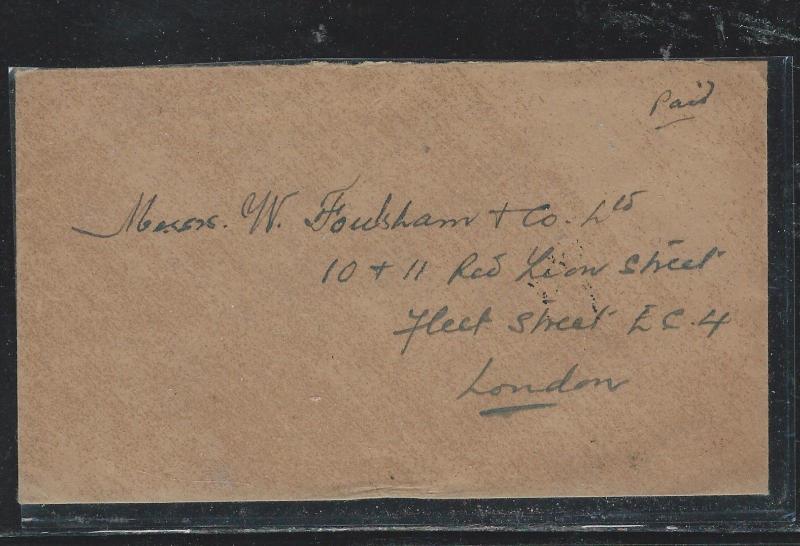 Paid
Messrs. W. Foulsham + Co. Ltd
10 + 11 Red Lion Street
Fleet Street E.C.4
London